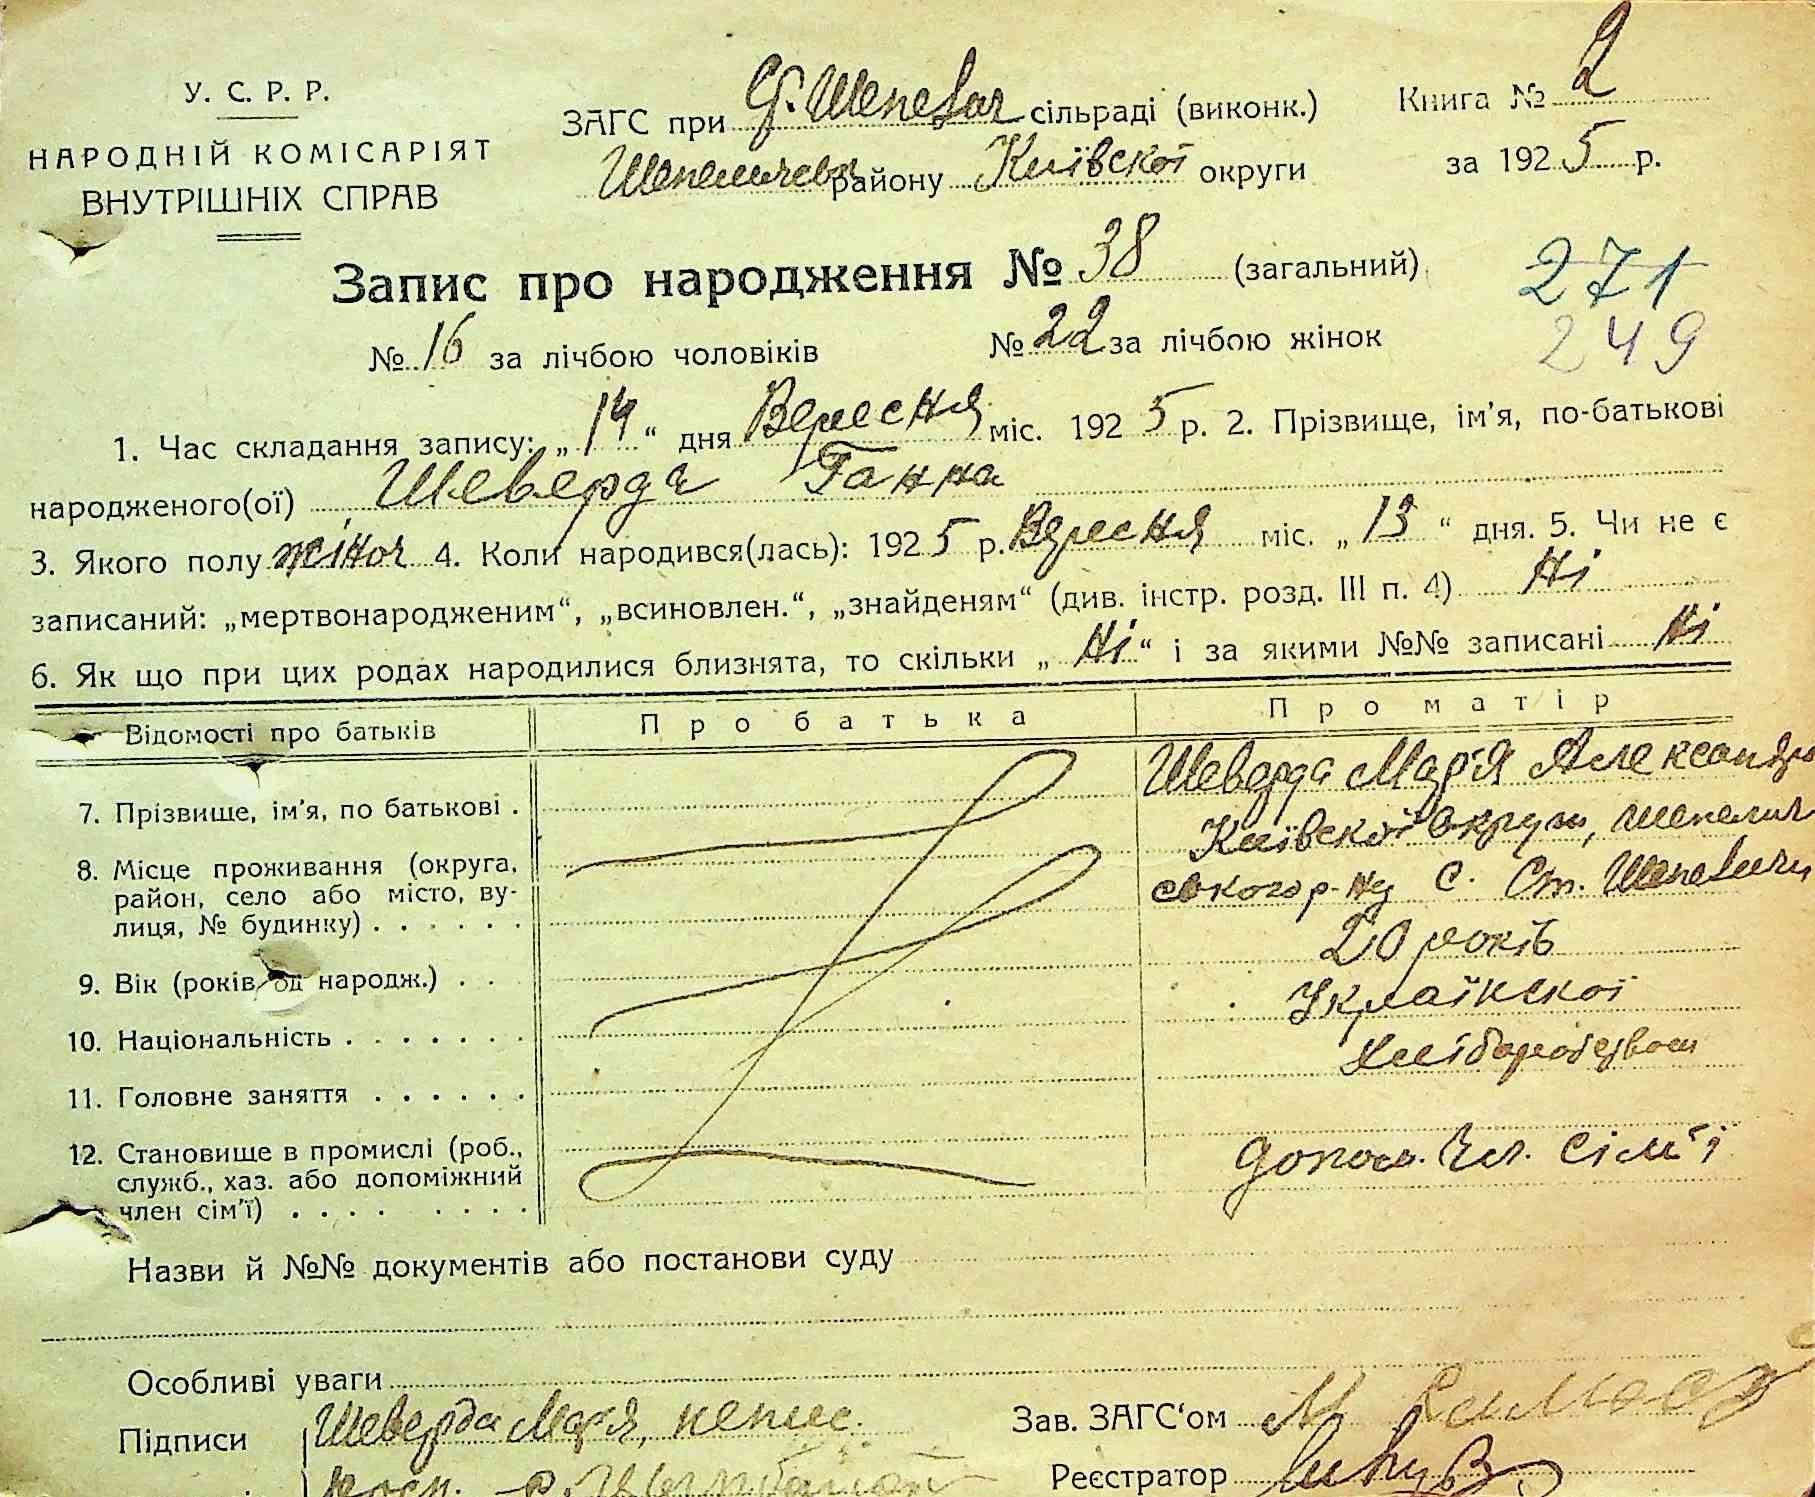 У. С. Р. Р.
НАРОДНІЙ КОМІСАРІЯТ
ВНУТРІШНІХ СПРАВ
ЗАГС при Ст. Шепелич сільраді (виконк.)
Шепеличевск району Київскої округи
Книга № 2
за 1925 р.
Запис про народження № 38 (загальний)
271
249
№ 16 за лічбою чоловіків № 22 за лічбою жінок
1. Час складання запису: „14“ дня Вересня міс. 1925 р. 2. Прізвище, ім'я, по-батькові
народженого(ої) Шеверда Ганна
3. Якого полу жіноч 4. Коли народився(лась): 1925 р. Вересня міс. „13“ дня. 5. Чи не є
записаний: „мертвонародженим“, „всиновлен.“, „знайденям“ (див. інстр. розд. III п. 4) Ні
6. Як що при цих родах народилися близнята, то скільки „Ні“ і за якими №№ записані Ні
Відомості про батьків Про батька Про матір
7. Прізвище, ім'я, по батькові . Шеверда Марія Александр
8. Місце проживання (округа, Київскої округи, Шепелич
район, село або місто, ву- ського р-ну С. Ст. Шепеличи
лиця, № будинку) . . . . . .
9. Вік (років од народж.) . . 20 років
10. Національність . . . . . . . Українскої
11. Головне заняття . . . . . . хліборобством
12. Становище в промислі (роб., допом. чл. сім'ї
служб., хаз. або допоміжний
член сім'ї) . . . . . . . .
Назви й №№ документів або постанови суду
Особливі уваги
Підписи Шеверда Марія, непис.
Зав. ЗАГС'ом
Реєстратор